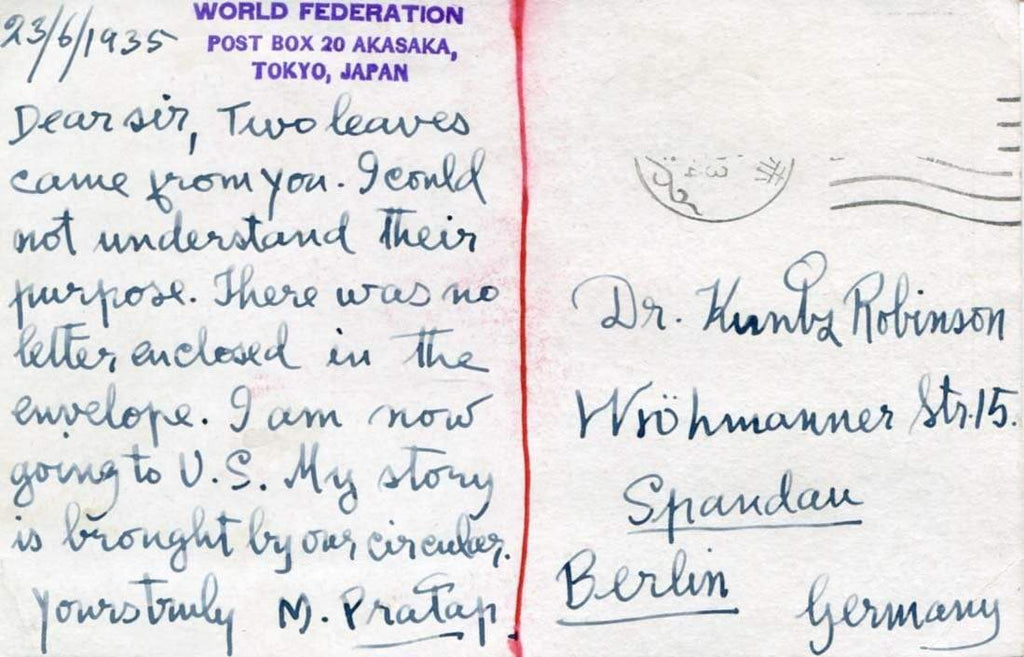 23/6/1935
WORLD FEDERATION
POST BOX 20 AKASAKA,
TOKYO, JAPAN
Dear sir, Two leaves
came from you. I could
not understand their
purpose. There was no
letter enclosed in the
envelope. I am now
going to U.S. My story
is brought by our circular.
Yours truly M. Pratap
Dr. Kuntz Robinson
Wröhmanner Str. 15.
Spandau
Berlin
Germany